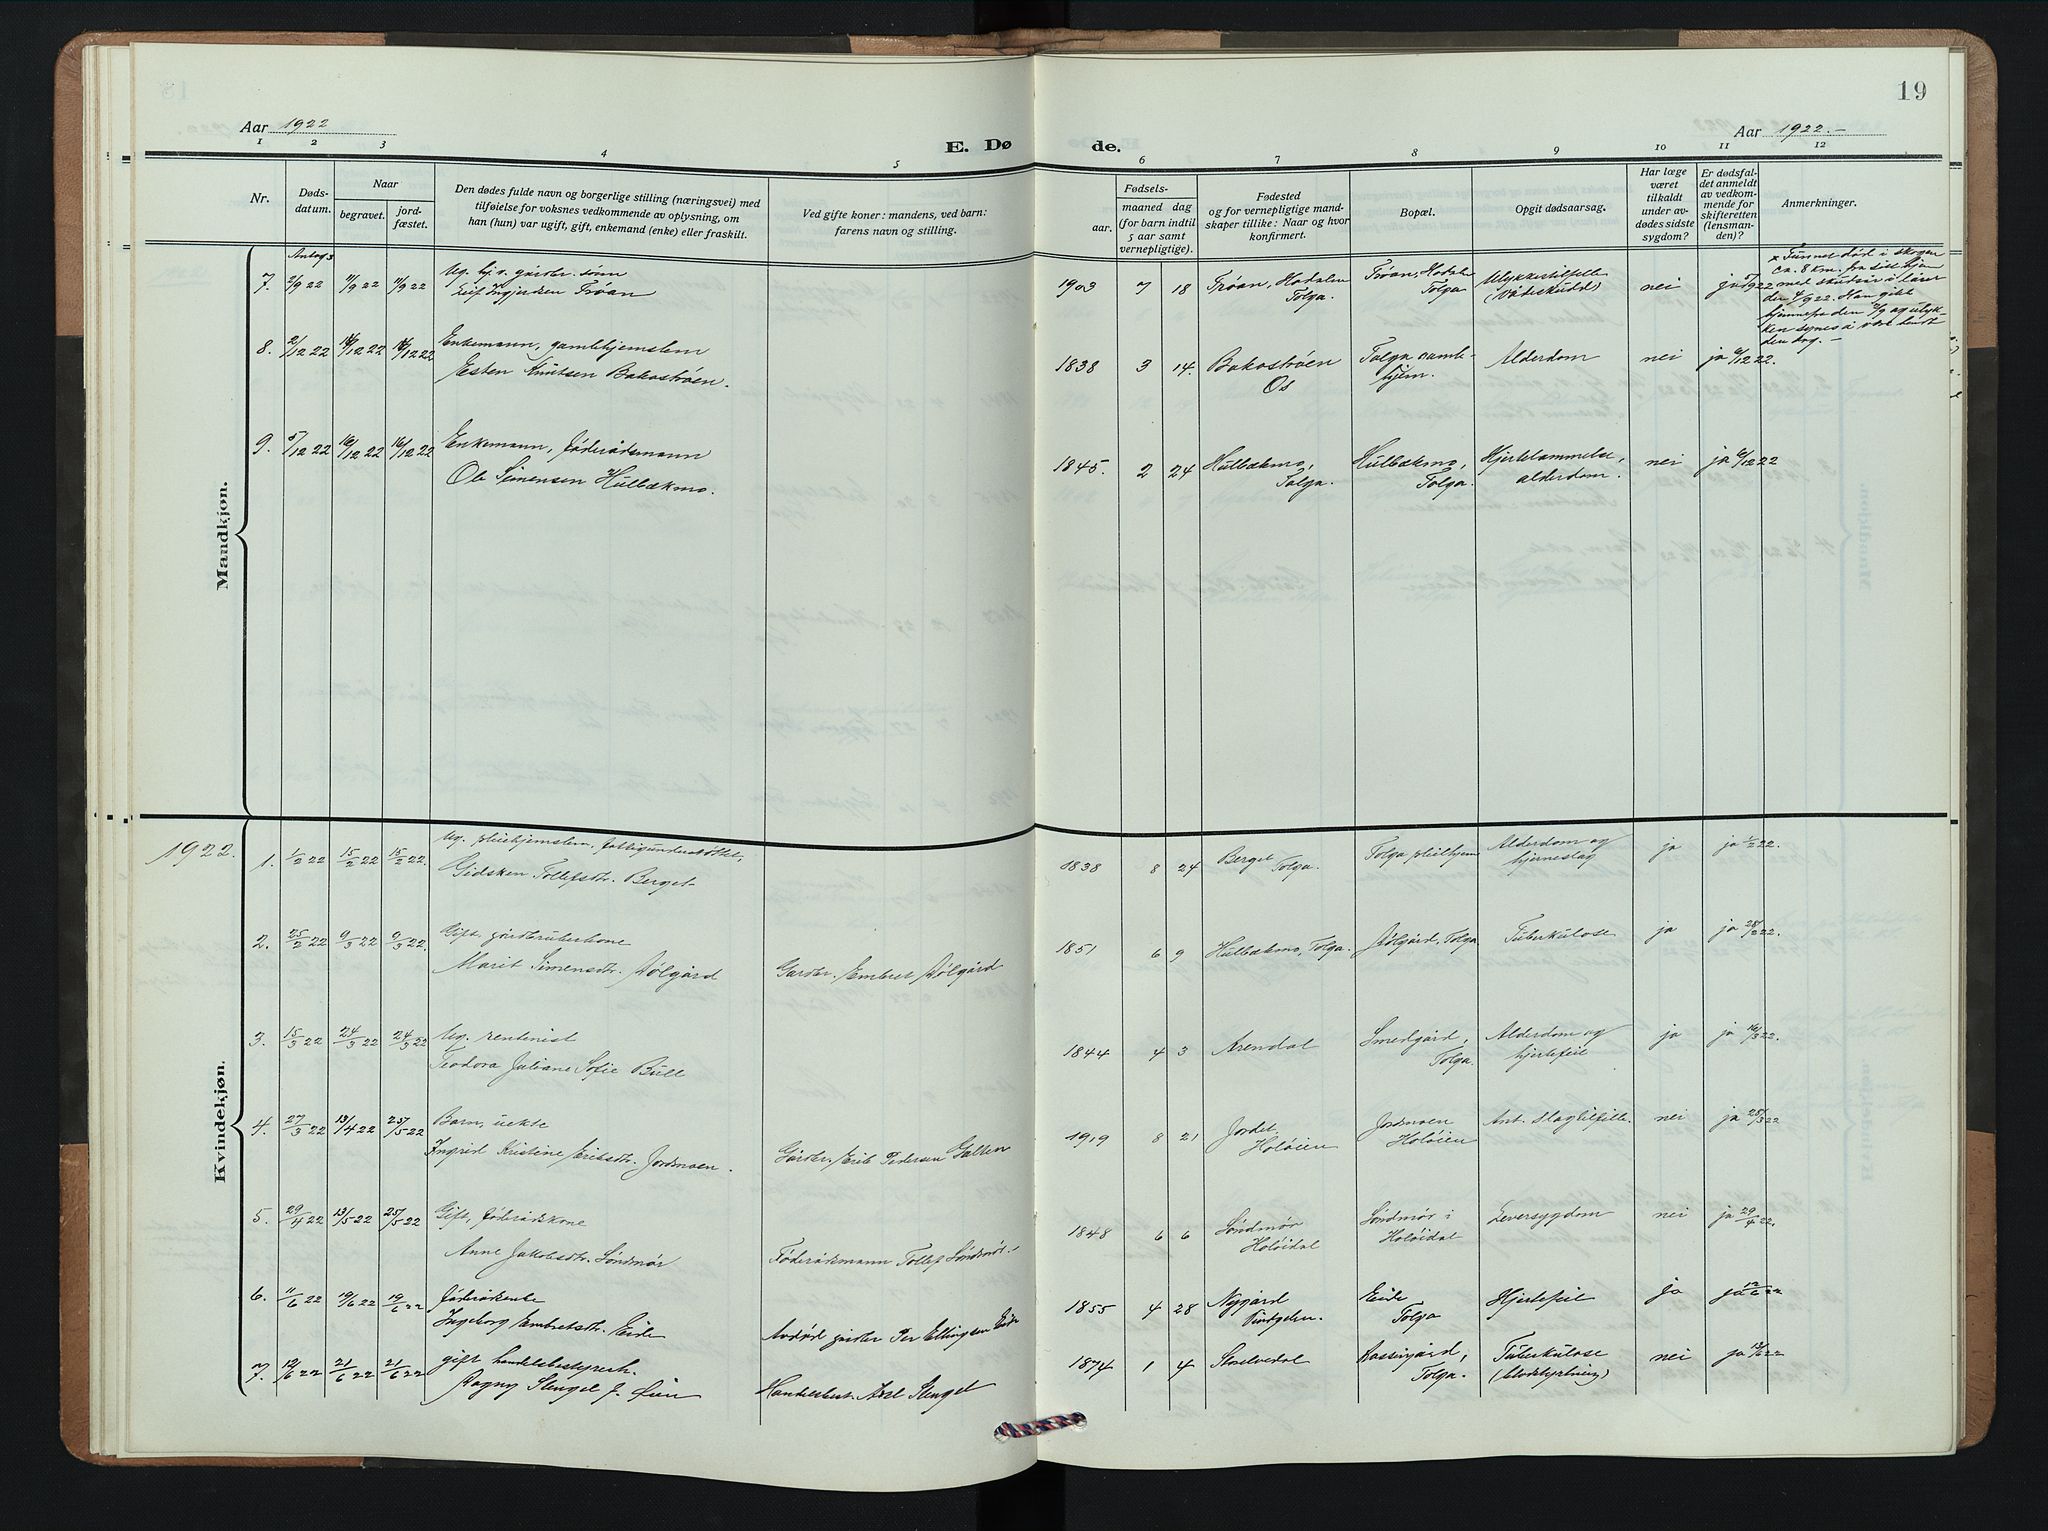 19
Aar 1922
E. Dø
de.
Aar 1922.-
1 2 3 4 5 6 7 8 9 10 11 12
Nr.
Døds-
datum.
Naar
begravet.
jord-
fæstet.
Den dødes fulde navn og borgerlige stilling (næringsvei) med
tilføielse for voksnes vedkommende av oplysning, om
han (hun) var ugift, gift, enkemand (enke) eller fraskilt.
Ved gifte koner: mandens, ved barn:
farens navn og stilling.
aar.
Fødsels-
maaned dag
(for barn indtil
5 aar samt
vernepligtige).
Fødested
og for vernepligtige mand-
skaper tillike: Naar og hvor
konfirmert.
Bopæl.
Opgit dødsaarsag.
Har læge
været
tilkaldt
under av-
dødes sidste
sygdom?
Er dødsfal-
det anmeldt
av vedkom-
mende for
skifteretten
(lensman-
den)?
Anmerkninger.
Mandkjøn.
Antag
7. 2/9 22 11/9 22 11/9 22 Ug. hj. v. gårdbr. sønn
Leif Ingjerdsen Trøan
1903 7 18 Trøan, Hodalen
Tolga.
Trøan, Hodalen
Tolga
Ulykkestilfelle
(Vådeskudd)
nei ja 5/9 22
x Funnet død i skogen
ca. 8 km. fra sitt hjem
med skudsår i låret
den 4/9 22. Han gikk
hjemmefra den 2/9 og ulyk-
ken synes å være hendt
den dag. -
8. 2/12 22 16/12 22 16/12 22 Enkemann, gamlehjemslem
Esten Knutsen Bakostrøen.
1838 3 14. Bakostrøen
Os
Tolga gamle-
hjem.
Alderdom nei ja 6/12 22.
9. 5/12 22 16/12 22 16/12 22 Enkemann, føderådsmann
Ole Simensen Hulbækmo.
1845. 2 24 Hulbækmo,
Tolga.
Hulbækmo,
Tolga.
Hjertelammelse,
alderdom.
nei ja 6/12 22
Kvindekjøn.
1922.
1. 1/2 22 15/2 22 15/2 22. Ug. pleiehjemslem, fattigunderstøttet,
Gidsken Tollefsdtr. Berget
1838 8 24 Berget
Tolga.
Tolga pleiehjem
Alderdom og
hjerneslag
ja ja 1/2 22.
2. 25/2 22 9/3 22 9/3 22. Gift, gårdbrukerkone
Marit Simensdtr. Dølgård
Gardbr. Embret Dølgård
1851 6 9 Hulbækmo, Tolga. Dølgård, Tolga Tuberkulose ja ja 28/2 22.
3. 15/3 22 24/3 22 24/3 22 Ug. rentenist
Teodora Juliane Sofie Bull
1844 4 3 Arendal
Smedgård,
Tolga.
Alderdom og
hjertefeil
ja ja 16/3 22.
4. 27/3 22 13/4 22 25/5 22 Barn, uekte
Ingrid Kristine Eriksdtr. Jordmoen.
Gårdbr. Erik Pedersen Galten
1919 8 21 Jordet,
Holøien
Jordmoen
Holøien
Ant. Slagtilfelle. nei ja 28/3 22.
5. 29/4 22 13/5 22 25/5 22 Gift, føderådskone
Anne Jakobsdtr. Søndmør
Føderådsmann Tollef Søndmør.
1848 6 6 Søndmør
Holøidal
Søndmør i
Holøidal
Leversygdom nei ja 29/4 22.
6. 11/6 22 19/6 22 19/6 22 føderådsenke
Ingeborg Embretsdtr. Eide
Avdød gårdbr Per Ellingsen Eide
1855 4 28 Nygård
Vingelen.
Eide
Tolga
Hjertefeil ja ja 12/6 22
7. 12/6 22 21/6 22 21/6 22 gift handelsbestyrersk.
Ragna Stengel f. Øien
Handelsbest. Axel Stengel
1874 1 4 Storelvedal
Kassergård,
Tolga.
Tuberkulose
(blodstyrtning)
nei ja 13/6 22